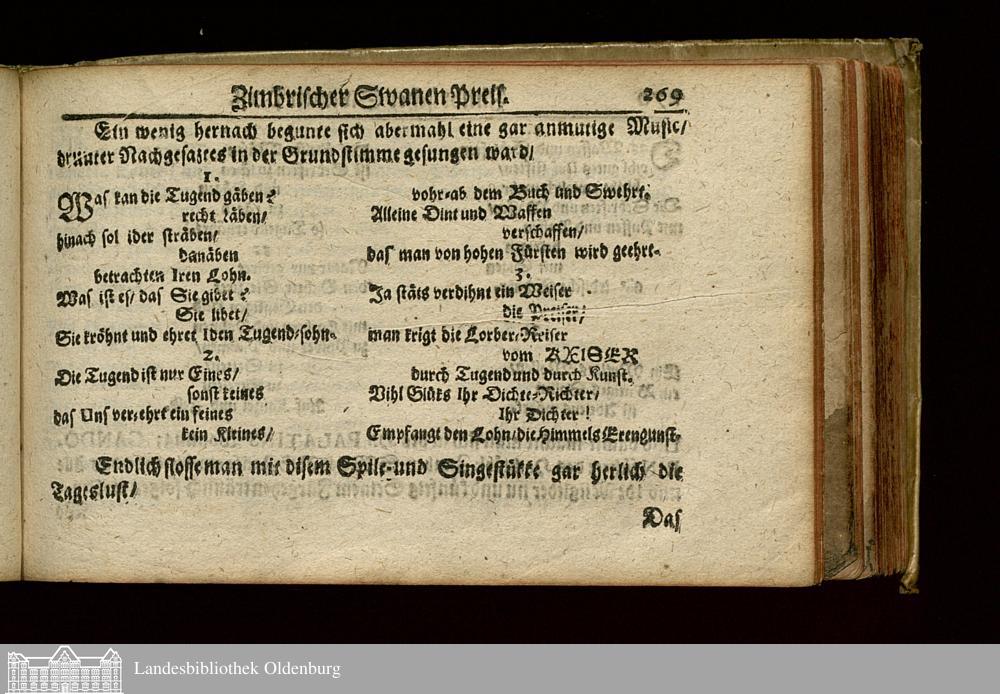 Zimbrischer Swanen Preis. 269
Ein wenig hernach begunte sich abermahl eine gar anmutige Music/
drunter Nachgesaztes in der Grundstimme gesungen ward/
1.
Was kan die Tugend gäben?
recht läben/
hinach sol ider sträben/
danäben
betrachten Iren Lohn.
Was ist es/ das Sie gibet?
Sie libet/
Sie kröhnt und ehret Iden Tugend-sohn.
2.
Die Tugend ist nur Eines/
sonst keines
das Uns verehrt ein feines
kein Kleines/
vohr-ab dem Buch und Swehrt.
Alleine Dint und Waffen
verschaffen/
das man von hohen Fürsten wird geehrt.
3.
Ja stäts verdihnt ein Weiser
die Preiser/
man krigt die Lorber-Reiser
vom KAISER
durch Tugend und durch Kunst.
Vihl Glüks Ihr Dichte-Richter/
Ihr Dichter!
Empfangt den Lohn/ die Himmels Erengunst.
Endlich slosse man mit disem Spile- und Singestükke gar herlich die
Tageslust/
Das
Landesbibliothek Oldenburg